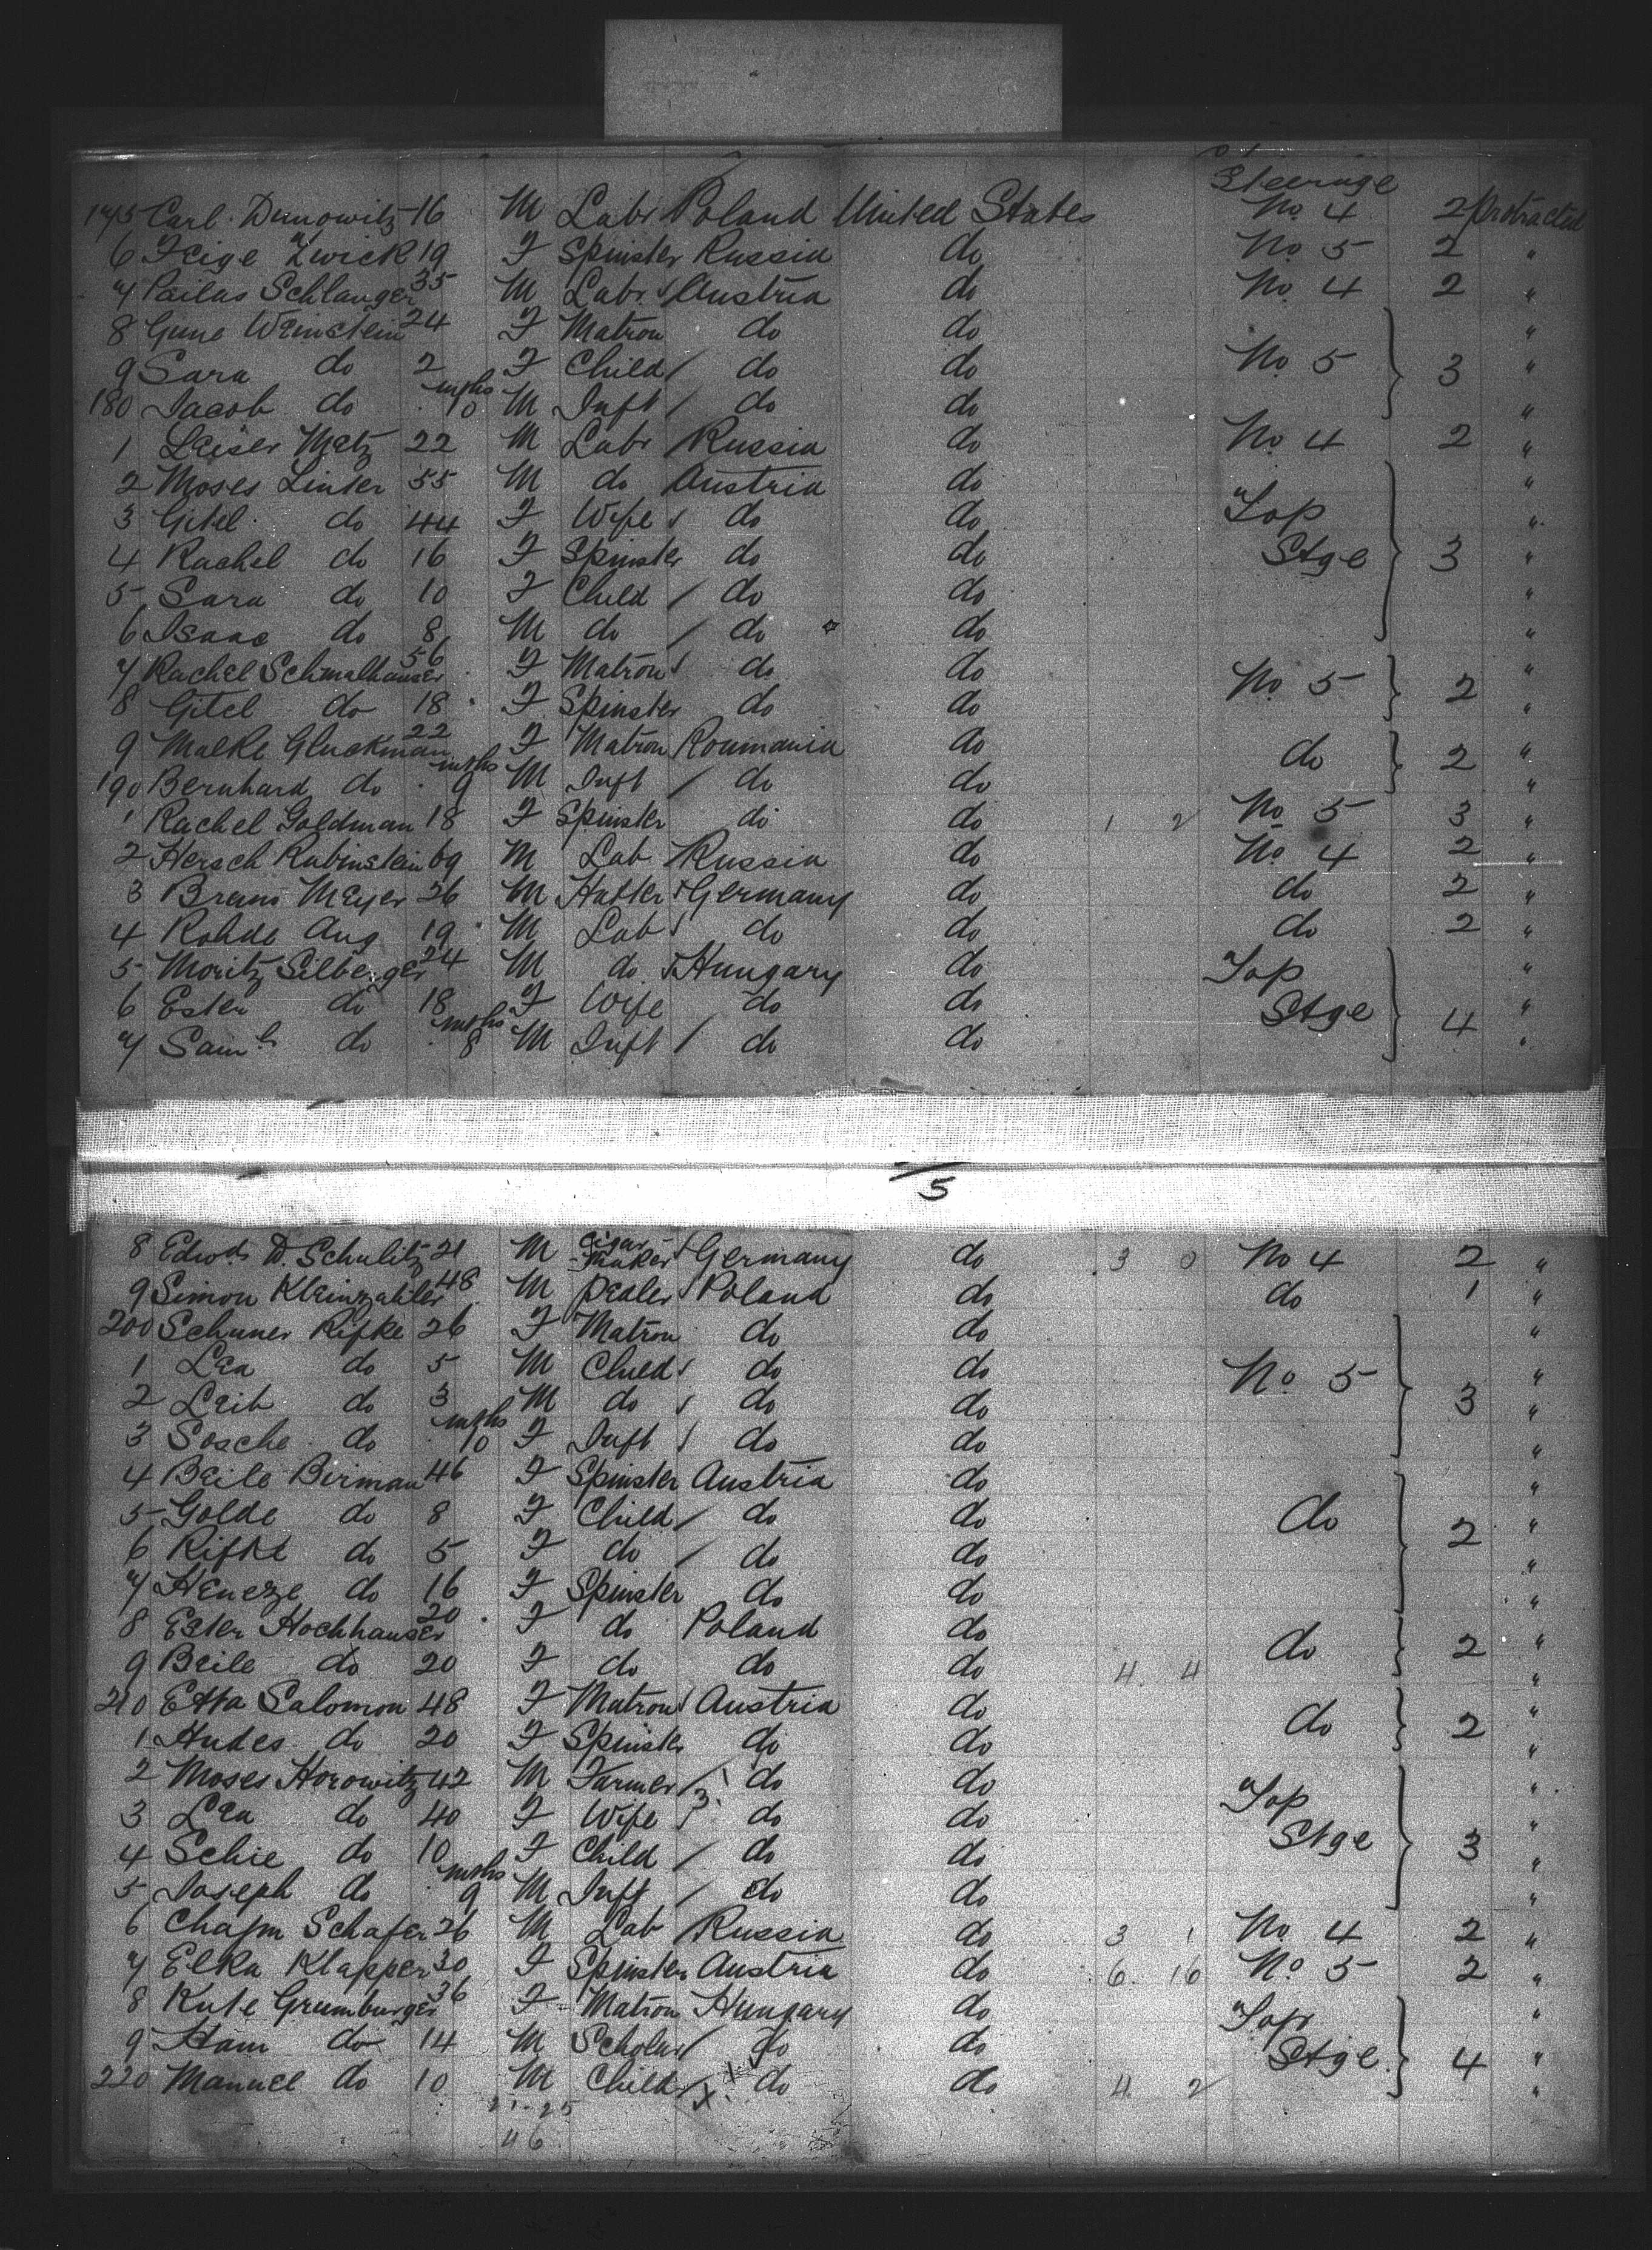 Steerage
175 Carl Dunowitz 16 M Labr Poland United States No. 4 2 Protracted
6 Feige Zwick 19 F Spinster Russia do No. 5 2 "
7 Pailas Schlanger 35 M Labr Austria do No. 4 2 "
8 Gune Weinstein 24 F Matron do do "
9 Sara do 2 F Child do do No. 5 3 "
180 Jacob do mths 10 M Inft do do "
1 Leiser Metz 22 M Labr Russia do No. 4 2 "
2 Moses Linter 55 M do Austria do "
3 Gitel do 44 F Wife do do Top "
4 Rachel do 16 F Spinster do do Stge 3 "
5 Sara do 10 F Child do do "
6 Isaac do 8 M do do do "
7 Rachel Schmalhauser 56 F Matron do do "
8 Gitel do 18 F Spinster do do No. 5 2 "
9 Malke Gluckman 22 F Matron Roumania do "
190 Bernhard do mths 9 M Inft do do do 2 "
1 Rachel Goldman 18 F Spinster do do 1 2 No. 5 3 "
2 Hersch Rubinstein 69 M Lab Russia do No. 4 2 "
3 Brams Meyer 26 M Hatter Germany do do 2 "
4 Rohde Aug 19 M Lab do do do 2 "
5 Moritz Silberger 24 M do Hungary do Top "
6 Ester do 18 F Wife do do Stge 4 "
7 Saml do mths 8 M Inft do do "
5
8 Edwd. D. Schulitz 21 M Cigar-Maker Germany do 3 0 No 4 2 "
9 Simon Kleinzahler 48 M Dealer Poland do do 1 "
200 Schuner Rifke 26 F Matron do do "
1 Lea do 5 M Child do do No. 5 "
2 Leib do 3 M do do do 3 "
3 Sosche do mths 10 F Inft do do "
4 Beile Birman 46 F Spinster Austria do "
5 Golde do 8 F Child do do do "
6 Rifke do 5 F do do do 2 "
7 Henesze do 16 F Spinster do do "
8 Ester Hochhauser 20 F do Poland do "
9 Beile do 20 F do do do 4 4 do 2 "
210 Etta Salomon 48 F Matron Austria do "
1 Hudes do 20 F Spinster do do do 2 "
2 Moses Horowitz 42 M Farmer do do Top "
3 Lea do 40 F Wife do do "
4 Schie do 10 F Child do do Stge 3 "
5 Joseph do mths 9 M Inft do do "
6 Chajm Schafer 26 M Lab Russia do 3 1 No. 4 2 "
7 Elka Klapper 30 F Spinster Austria do 6 16 No. 5 2 "
8 Kute Grumburger 36 F Matron Hungary do Top "
9 Ham do 14 M Scholar do do Stge 4 "
220 Manuel do 10 M Child do do 4 2 "
21-25
46